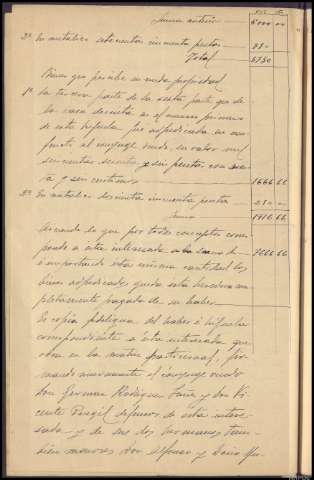 Suma anterior 6000 00
2º En metalico setecientas cincuenta pesetas 750
Total 6750
Bienes que percibe en nuda propiedad
1º La tercera parte de la sexta parte que de
la casa descrita en el numero primero
de esta hijuela fue adjudicada en usu
fructo al conyuge viudo, su valor mil
seiscientas sesenta y seis pesetas con sesen
ta y seis centimos 1666 66
2º En metalico doscientas cincuenta pesetas 250
Suma 1916 66
Resulta de que por todos conceptos corres
ponde a esta interesada la suma de 8666 66
é importando esta misma cantidad los
bienes adjudicados queda esta heredera com
pletamente pagada de su haber
Es copia fidedigna del haber é hijuela
correspondiente á esta interesada que
obra en la matriz particional, fir
mando nuevamente el conyuge viudo
Don German Rodriguez y Don Vi
cente defensor de esta intere
sada y de sus dos hermanos tam
bien menores Don Alfonso y Doña